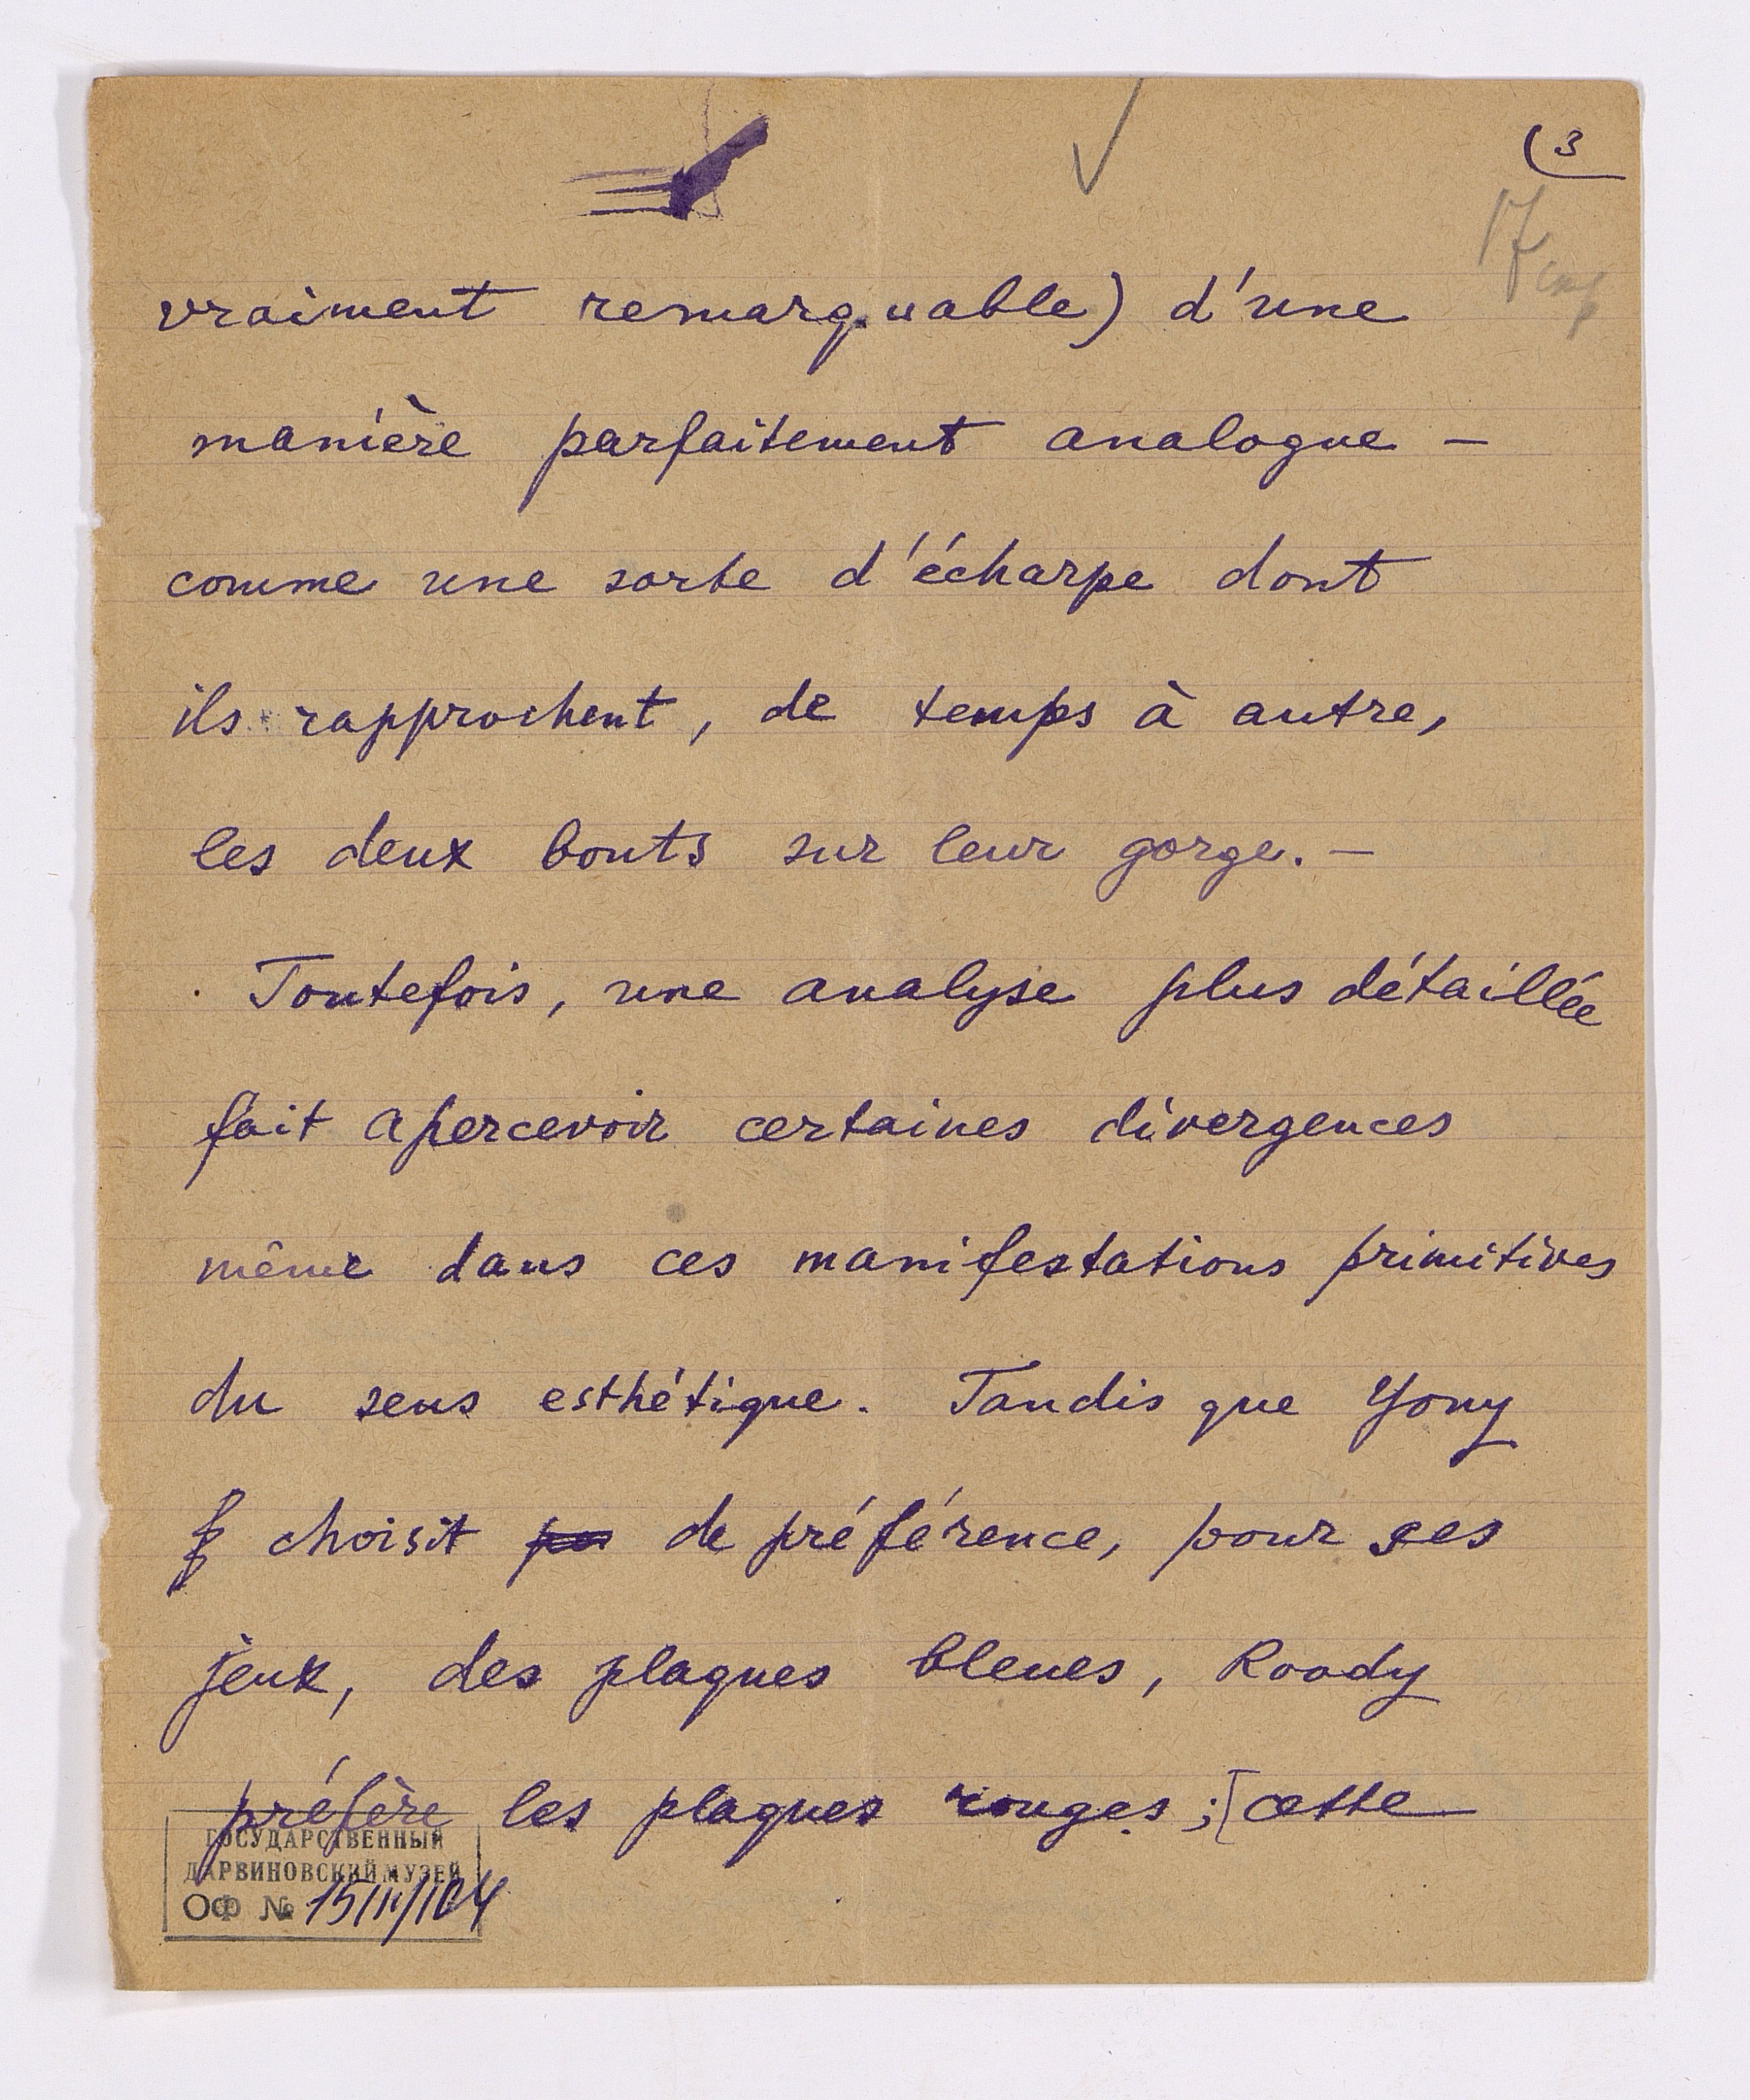 (3
17 стр
vraiment remarquable) d'une
manière parfaitement analogue –
comme une sorte d'écharpe dont
ils rapprochent, de temps à autre,
les deux bouts sur leur gorge. –
Toutefois, une analyse plus détaillée
fait apercevoir certaines divergences
même dans ces manifestations primitives
du sens esthétique. Tandis que Yony
choisit de préférence, pour ses
jeux, des plaques bleues, Roody
préfère les plaques rouges ; [cette
ГОСУДАРСТВЕННЫЙ
ДАРВИНОВСКИЙ МУЗЕЙ
ОФ №